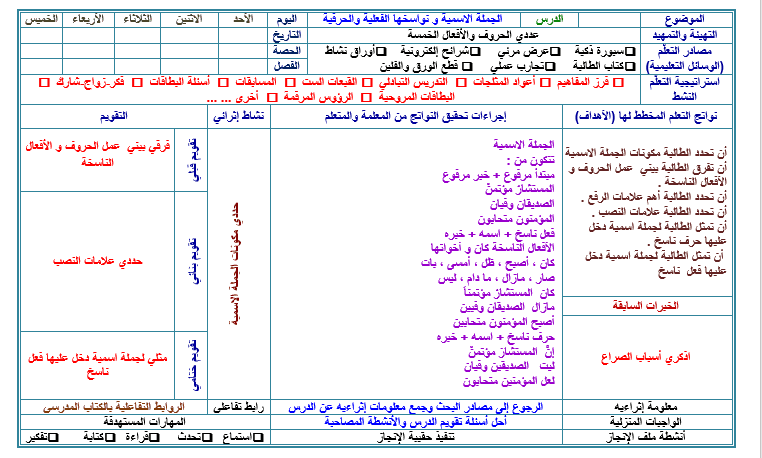 الموضوع الدرس الجملة الاسمية و نواسخها الفعلية والحرفية اليوم الأحد الاثنين الثلاثاء الأربعاء الخميس
التهيئة والتمهيد عددي الحروف والأفعال الخمسة التاريخ
مصادر التعلم سبورة ذكية عرض مرئي شرائح إلكترونية أوراق نشاط الحصة
(الوسائل التعليمية) كتاب الطالبة تجارب عملي قطع الورق والفلين الفصل
استراتيجية التعلم النشط
فرز المفاهيم أعواد المثلجات التدريس التبادلي القبعات الست المسابقات أسئلة البطاقات فكر-زواج-شارك
البطاقات المروحية الرؤوس المرقمة أخرى ... ...
نواتج التعلم المخطط لها (الأهداف) إجراءات تحقيق النواتج من المعلمة والمتعلم نشاط إثرائي التقويم
أن تحدد الطالبة مكونات الجملة الاسمية
أن تفرق الطالبة بيني عمل الحروف و
الأفعال الناسخة .
أن تحدد الطالبة أهم علامات الرفع .
أن تحدد الطالبة علامات النصب .
أن تمثل الطالبة لجملة اسمية دخل
عليها حرف ناسخ .
أن تمثل الطالبة لجملة اسمية دخل
عليها فعل ناسخ
الخبرات السابقة
اذكري أسباب الصراع
الجملة الاسمية
تتكون من :
مبتدأ مرفوع + خبر مرفوع
المستشار مؤتمنٌ
الصديقان وفيان
المؤمنون متحابون
فعل ناسخ + اسمه + خبره
الأفعال الناسخة كان و أخواتها
كان ، أصبح ، ظل ، أمسى ، بات
صار ، مازال ، ما دام ، ليس
كان المستشار مؤتمناً
مازال الصديقان وفيين
أصبح المؤمنون متحابين
حرف ناسخ + اسمه + خبره
إنَّ المستشار مؤتمنٌ
ليت الصديقين وفيان
لعل المؤمنين متحابون
حددي مكونات الجملة الاسمية
تقويم قبلي
فرقي بيني عمل الحروف و الأفعال
الناسخة
تقويم بنائي
حددي علامات النصب
تقويم ختامي
مثلي لجملة اسمية دخل عليها فعل
ناسخ
معلومة إثراءيه الرجوع إلى مصادر البحث وجمع معلومات إثراءيه عن الدرس رابط تفاعلي الروابط التفاعلية بالكتاب المدرسي
الواجبات المنزلية أحل أسئلة تقويم الدرس والأنشطة المصاحبة المهارات المستهدفة
أنشطة ملف الإنجاز تنفيذ حقيبة الإنجاز استماع تحدث قراءة كتابة تفكير